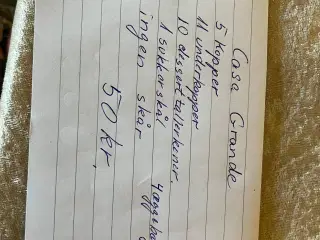 Casa Grande
5 kopper
11 underkopper
10 desserttallerkener.
1 sukkerskål
ingen skår
50 kr.